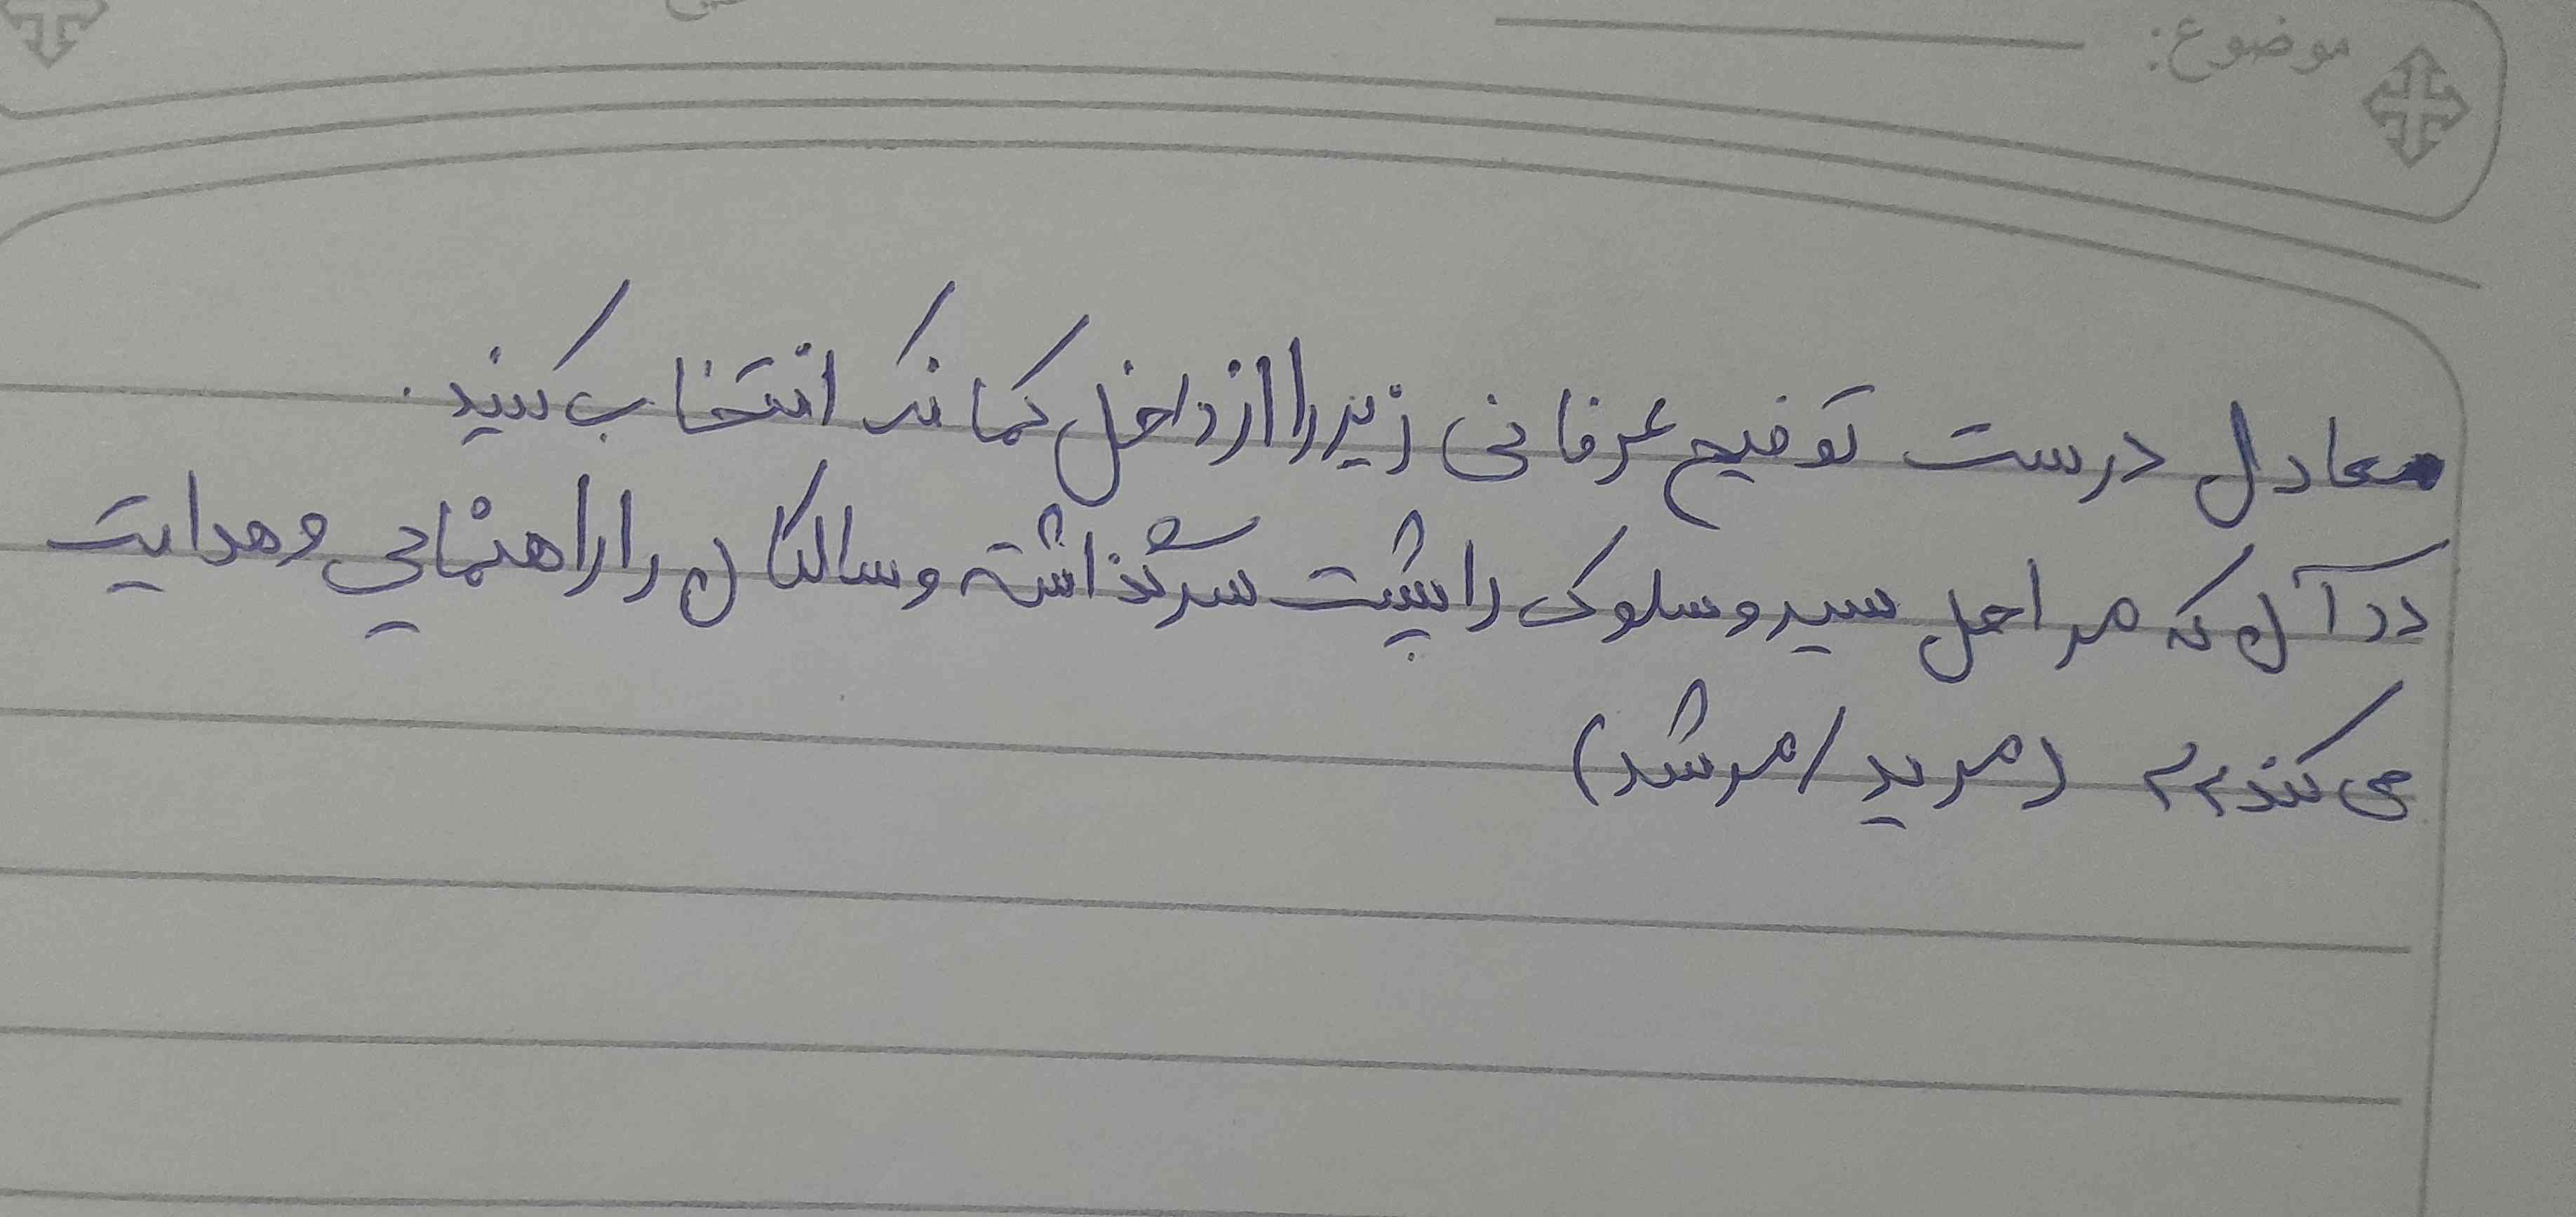 موضوع:
معادل درست توضیح عرفانی زیر را از داخل کمانک انتخاب کنید.
«آن که مراحل سیر و سلوک را پشت سر گذاشته و سالکان را راهنمایی و هدایت
می کند.» (مرید/مرشد)